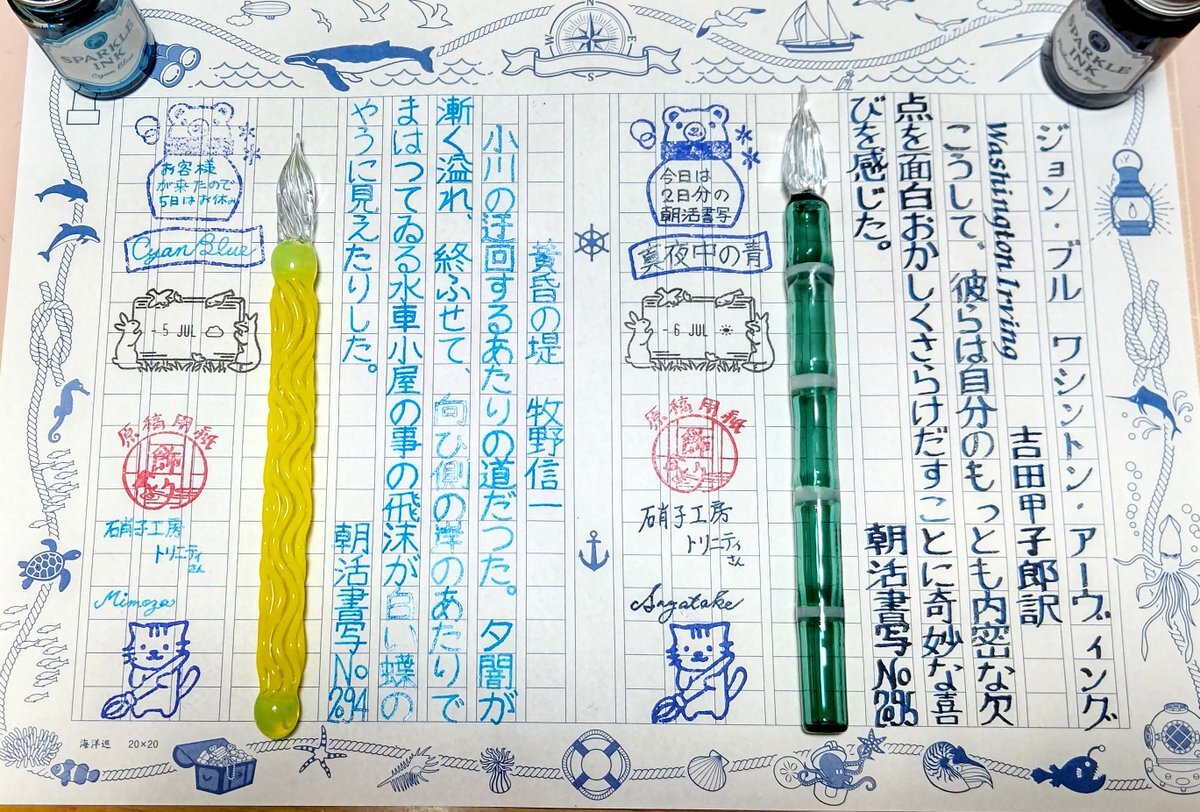 SPARKLE INK
Cyan Blue
SPARKLE INK
N
E
S
ジョン・ブル ワシントン・アーヴィング
吉田甲子郎訳
Washington Irving
こうして、彼らは自分のもっとも内密な欠
点を面白おかしくさらけだすことに奇妙な喜
びを感じた。
朝活書写 No 2095
今日は
2日分の
朝活書写
真夜中の青
- 6 JUL
原稿用紙
飾り
硝子工房
トリニティ
さん
Sagatake
黄昏の堤 牧野信一
小川の迂回するあたりの道だつた。夕闇が
漸く溢れ、終ふせて、向ひ側の岸のあたりで
まはつてゐる水車小屋の事の飛沫が白い蝶の
やうに見えたりした。
朝活書写 No 2094
お客様
が来たので
5日はお休み
Cyan Blue
- 5 JUL
原稿用紙
飾り
硝子工房
トリニティ
さん
Mimoza
海洋巡 20×20